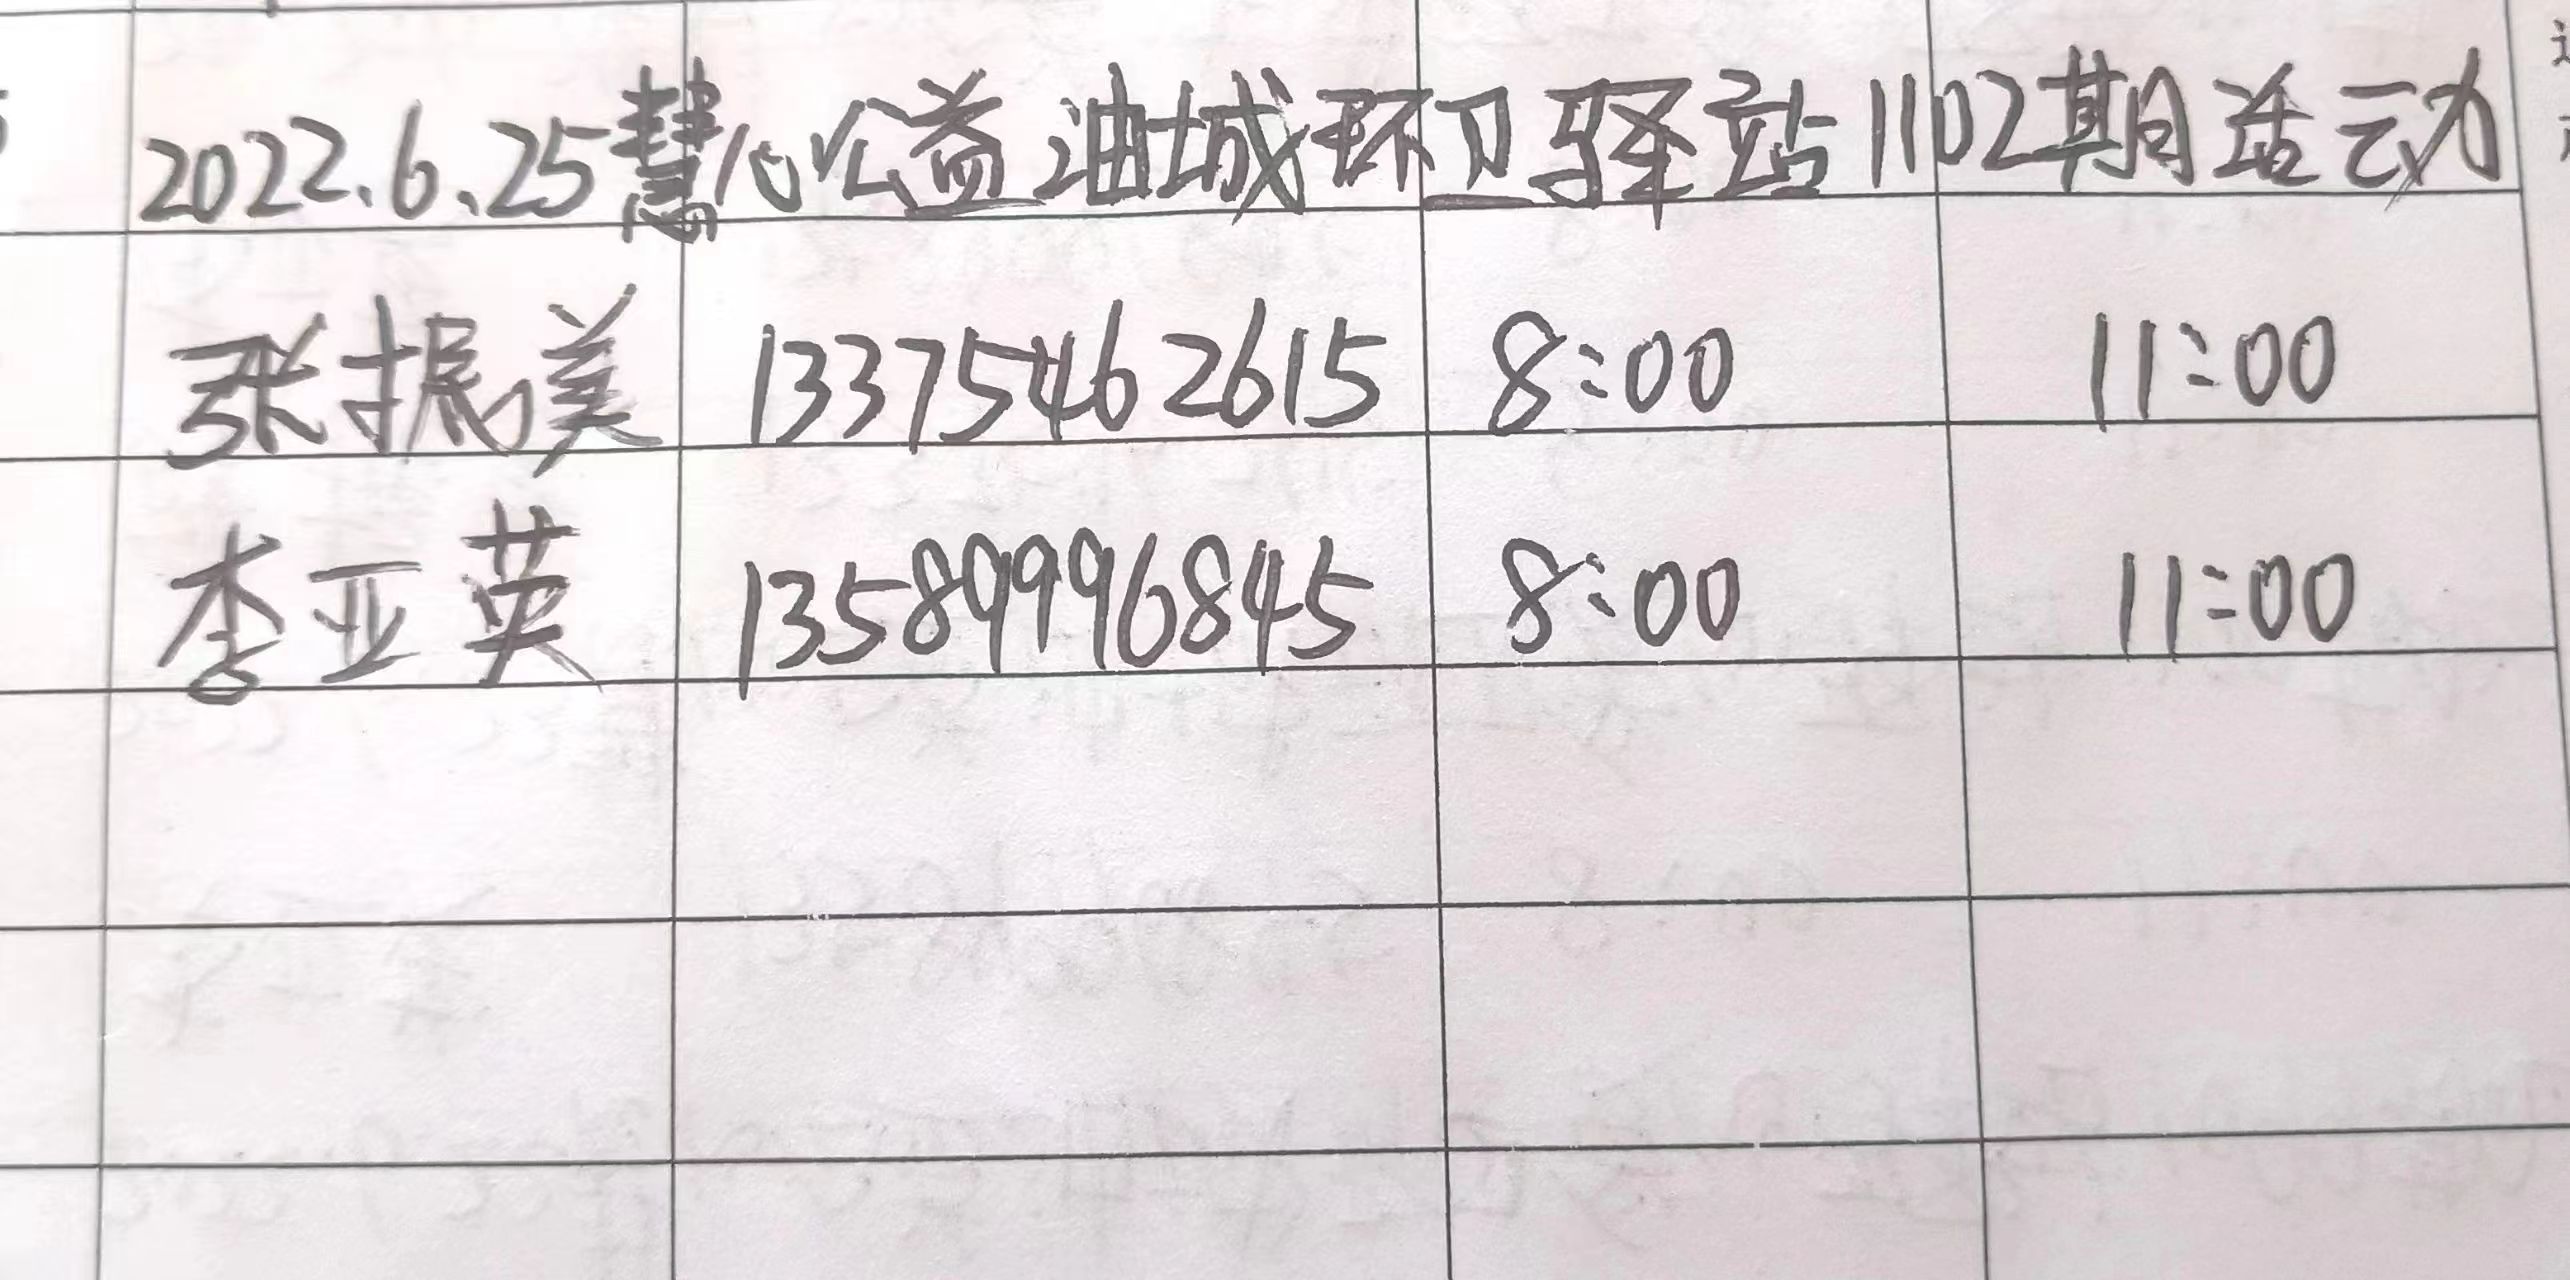 2022.6.25慧心公益油城环卫驿站1102期活动
张振美 13375462615 8:00 11:00
李亚英 13589996845 8:00 11:00